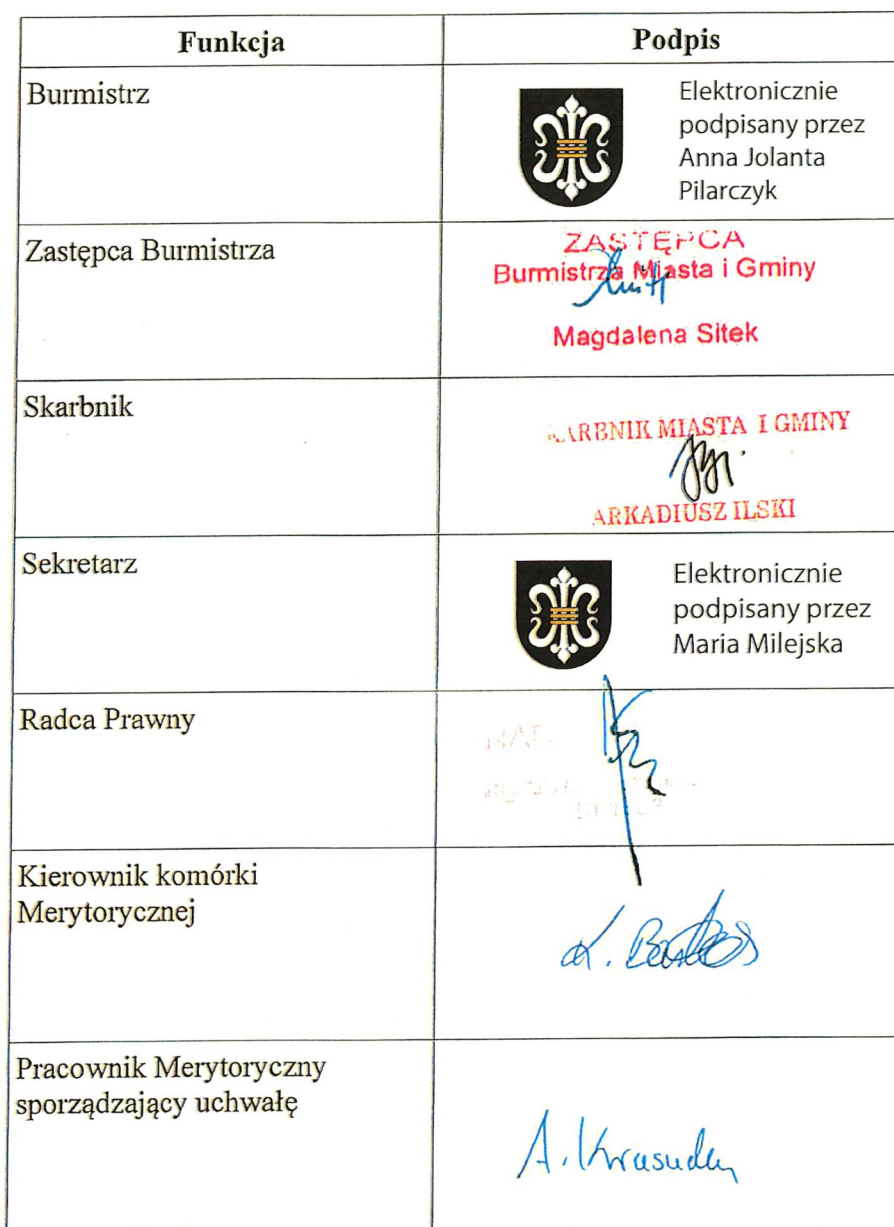 Funkcja Podpis
Burmistrz
Elektronicznie
podpisany przez
Anna Jolanta
Pilarczyk
Zastępca Burmistrza
ZASTĘPCA
Burmistrza Miasta i Gminy
Magdalena Sitek
Skarbnik
MIASTA I GMINY
ARKADIUSZ ILSKI
Sekretarz
Elektronicznie
podpisany przez
Maria Milejska
Radca Prawny
Kierownik komórki
Merytorycznej
Pracownik Merytoryczny
sporządzający uchwałę